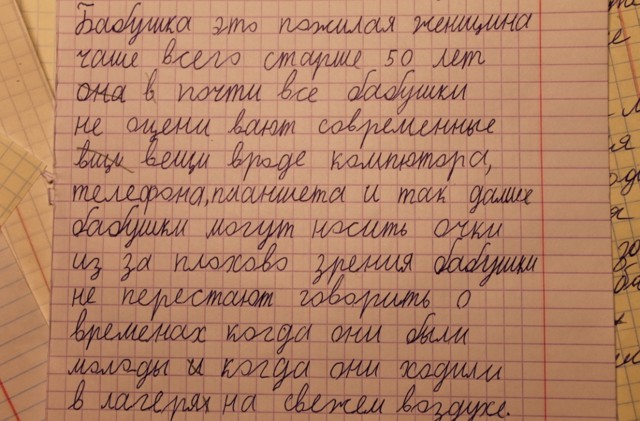 Бабушка это пожилая женщина
чаше всего старше 50 лет
она в почти все бабушки
не оцени вают современные
вещи вроде компютора,
телефона, планшета и так далие
бабушки могут носить очки
из за плохово зрения бабушки
не перестают говорить о
временах когда они были
молоды и когда они ходили
в лагерях на свежем воздухе.